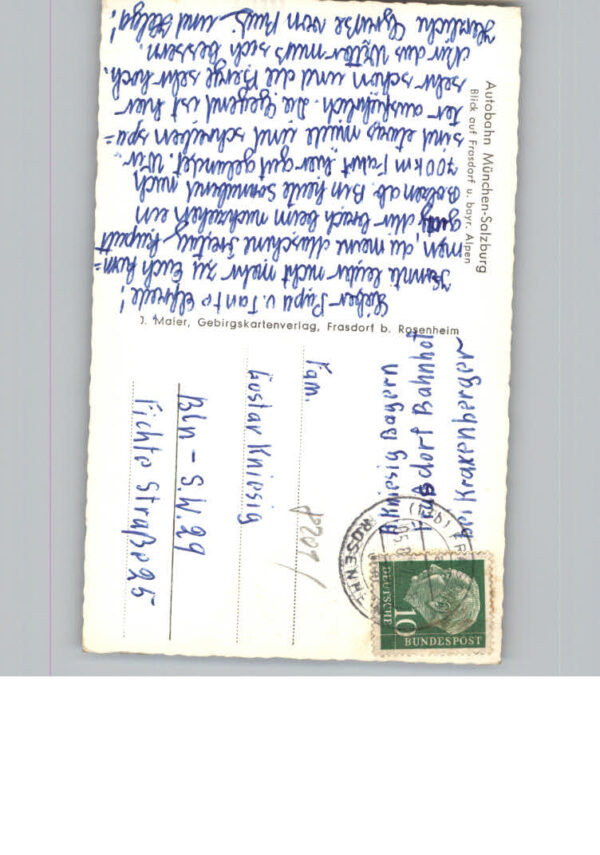 Autobahn München-Salzburg
Blick auf Frasdorf u. bayr. Alpen
Lieber Papa u. Tante Elfriede!
Konnte leider nicht mehr zu Euch kom=
men, da meine Maschine Freitag kaputt
ging. Mir brach beim nachziehen ein
Bolzen ab. Bin heute Sonnabend nach
700 km Fahrt hier gut gelandet. Wir
sind etwas müde und schreiben spä=
ter ausführlich. Die Gegend ist hier
sehr schön und die Berge sehr hoch.
Nur das Wetter muß sich bessern.
Herzliche Grüße von und Helga!
J. Maier, Gebirgskartenverlag, Frasdorf b. Rosenheim
A Kniesig Bayern
Frasdorf Bahnhof
bei Kraxenberger
ROSENH
DEUTSCHE
BUNDESPOST
10
Fam.
Gustav Kniesig
Bln - S.W. 29
Fichte Straße 25